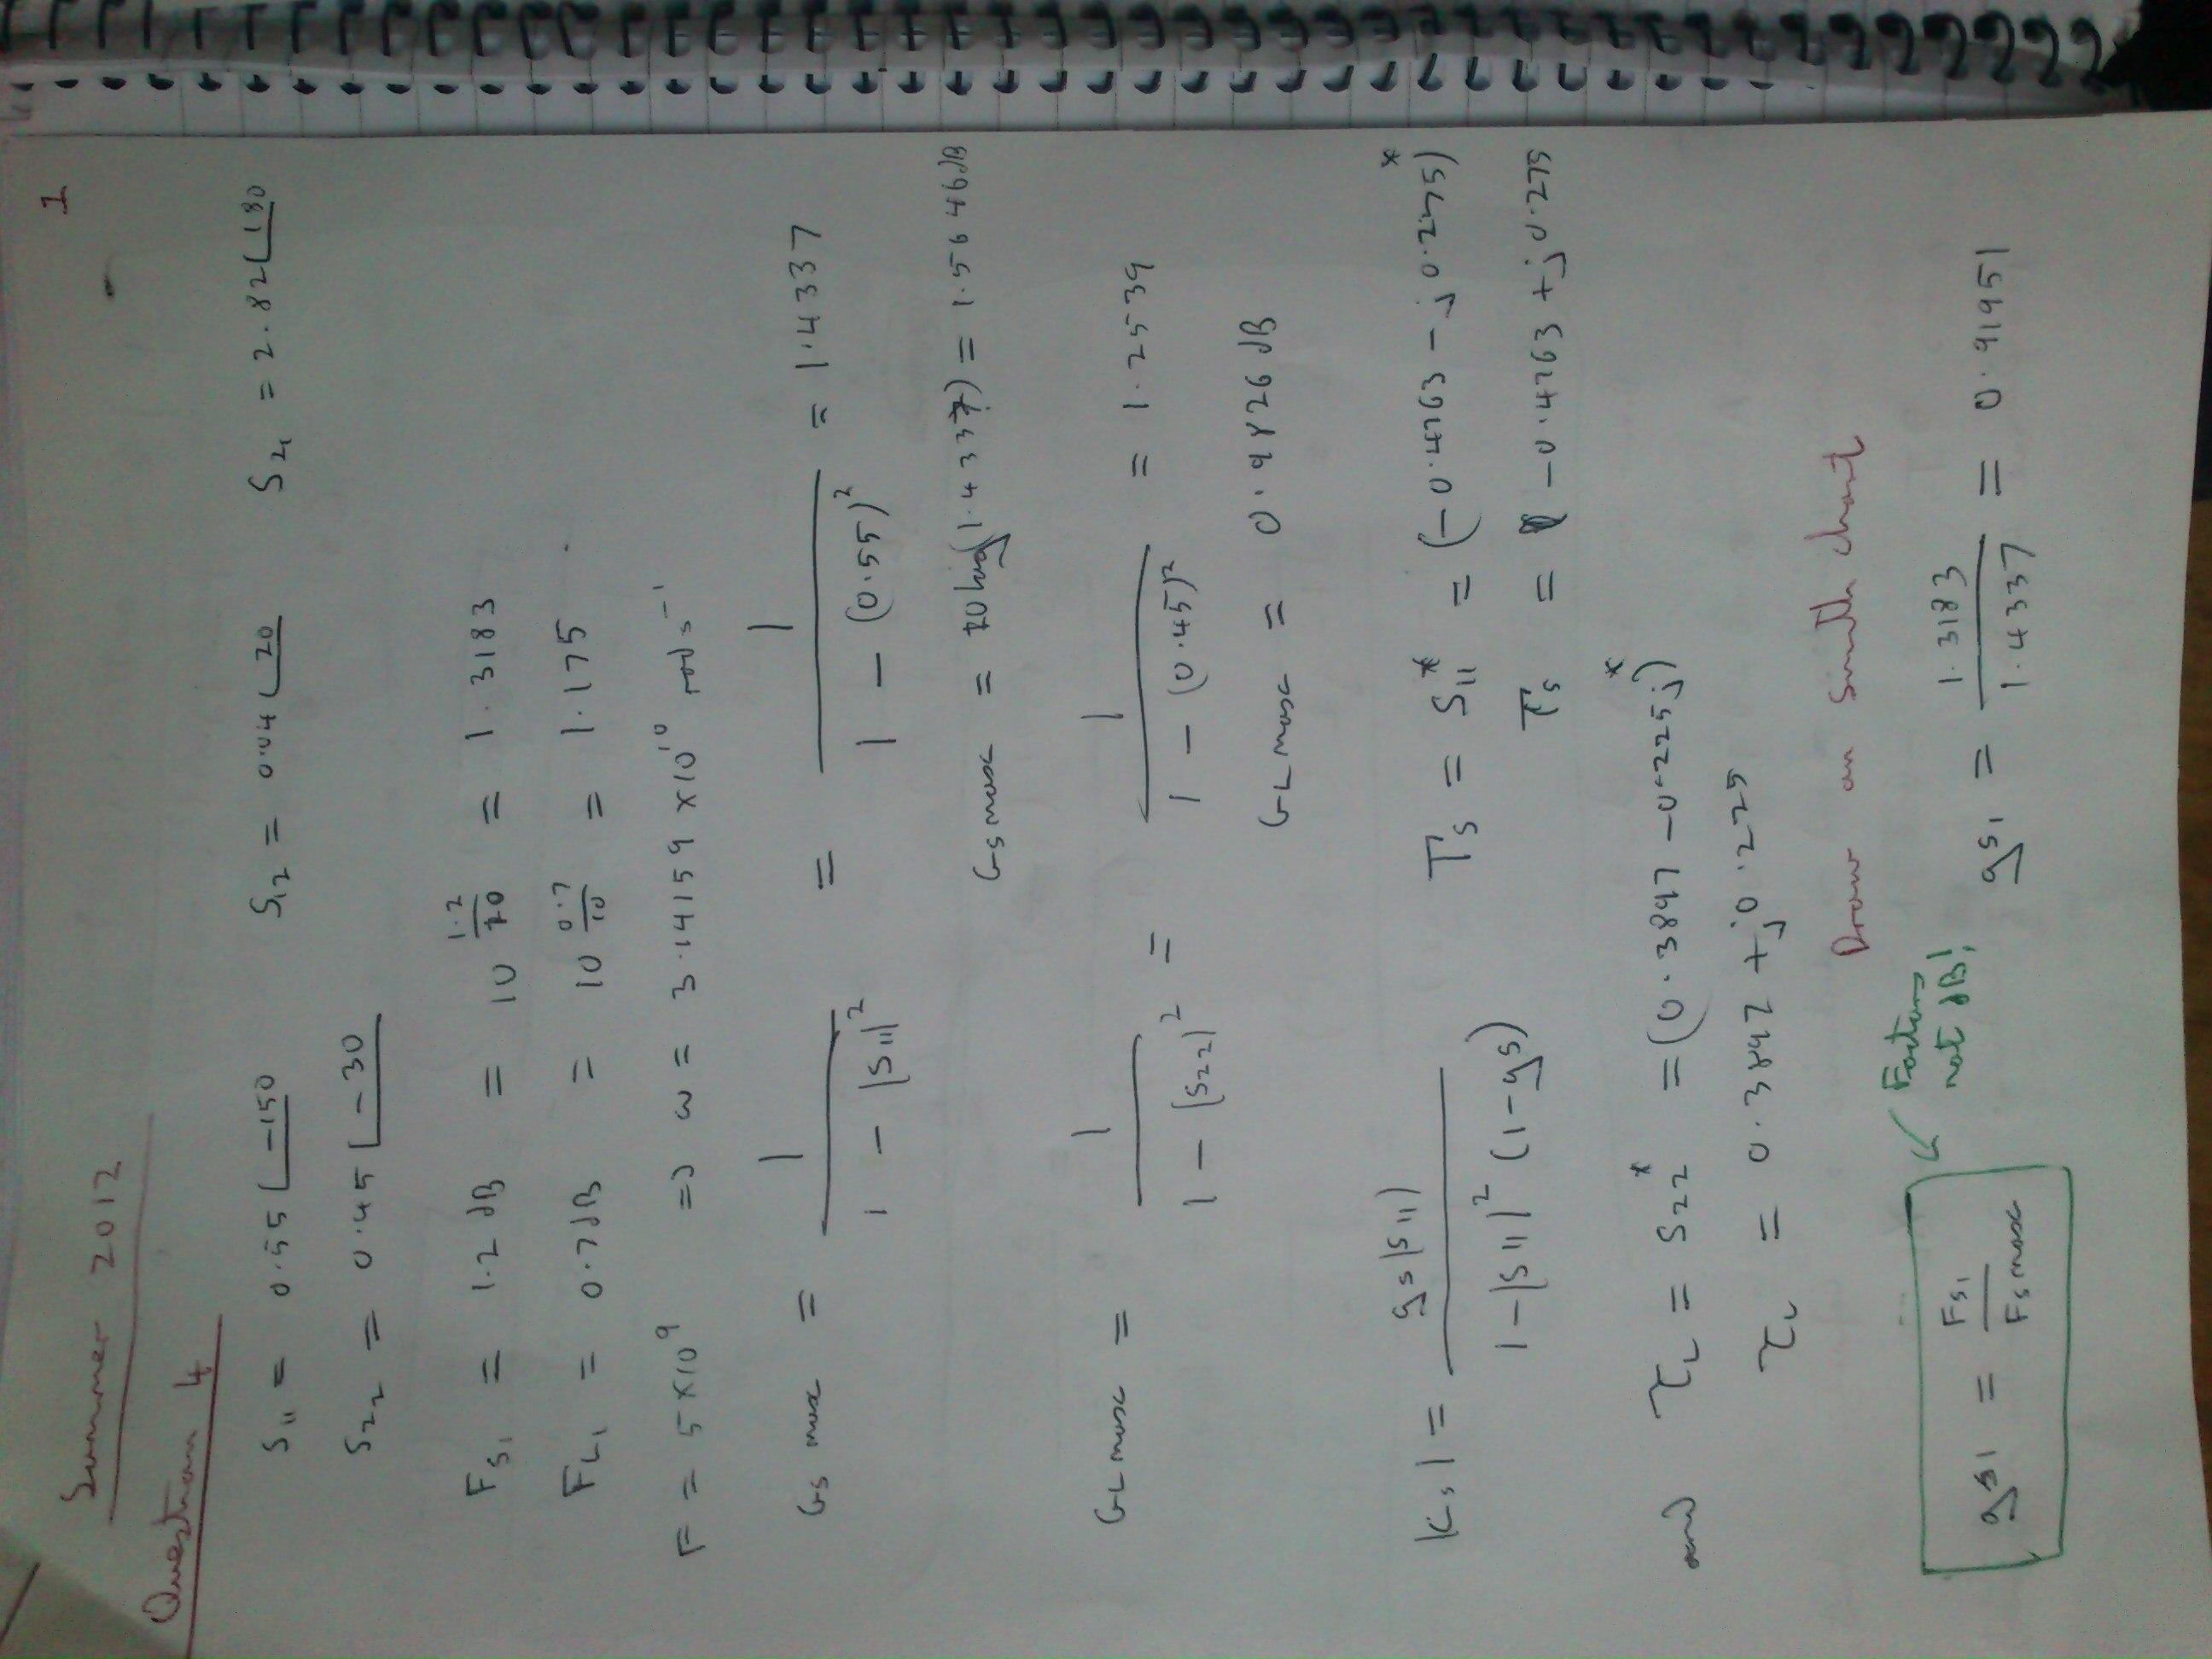 1
Summer 2012
Question 4
S₁₁ = 0.55∠-150 S₁₂ = 0.04∠20 S₂₁ = 2.82∠180
S₂₂ = 0.45∠-30
Fs₁ = 1.2 dB = 10^(1.2/10) = 1.3183
FL₁ = 0.7dB = 10^(0.7/10) = 1.175
F = 5×10⁹ => ω = 3.14159 ×10¹⁰ rad s⁻¹
Gs max = 1/(1 - |S₁₁|²) = 1/(1 - (0.55)²) = 1.4337
Gs max = 10 log(1.4337) = 1.5646 dB
GL max = 1/(1 - |S₂₂|²) = 1/(1 - (0.45)²) = 1.2539
GL max = 0.9826 dB
Ks₁ = gs|S₁₁|/(1-|S₁₁|²(1-gs)) Γs = S₁₁* = (-0.4763 - j0.275)*
Γs = -0.4763 + j0.275
and τL = S₂₂* = (0.3897 - 0.225j)*
τL = 0.3897 + j0.225
Draw on Smith chart
gs₁ = Fs₁/Fs max
Factors
not dB!
gs₁ = 1.3183/1.4337 = 0.91951